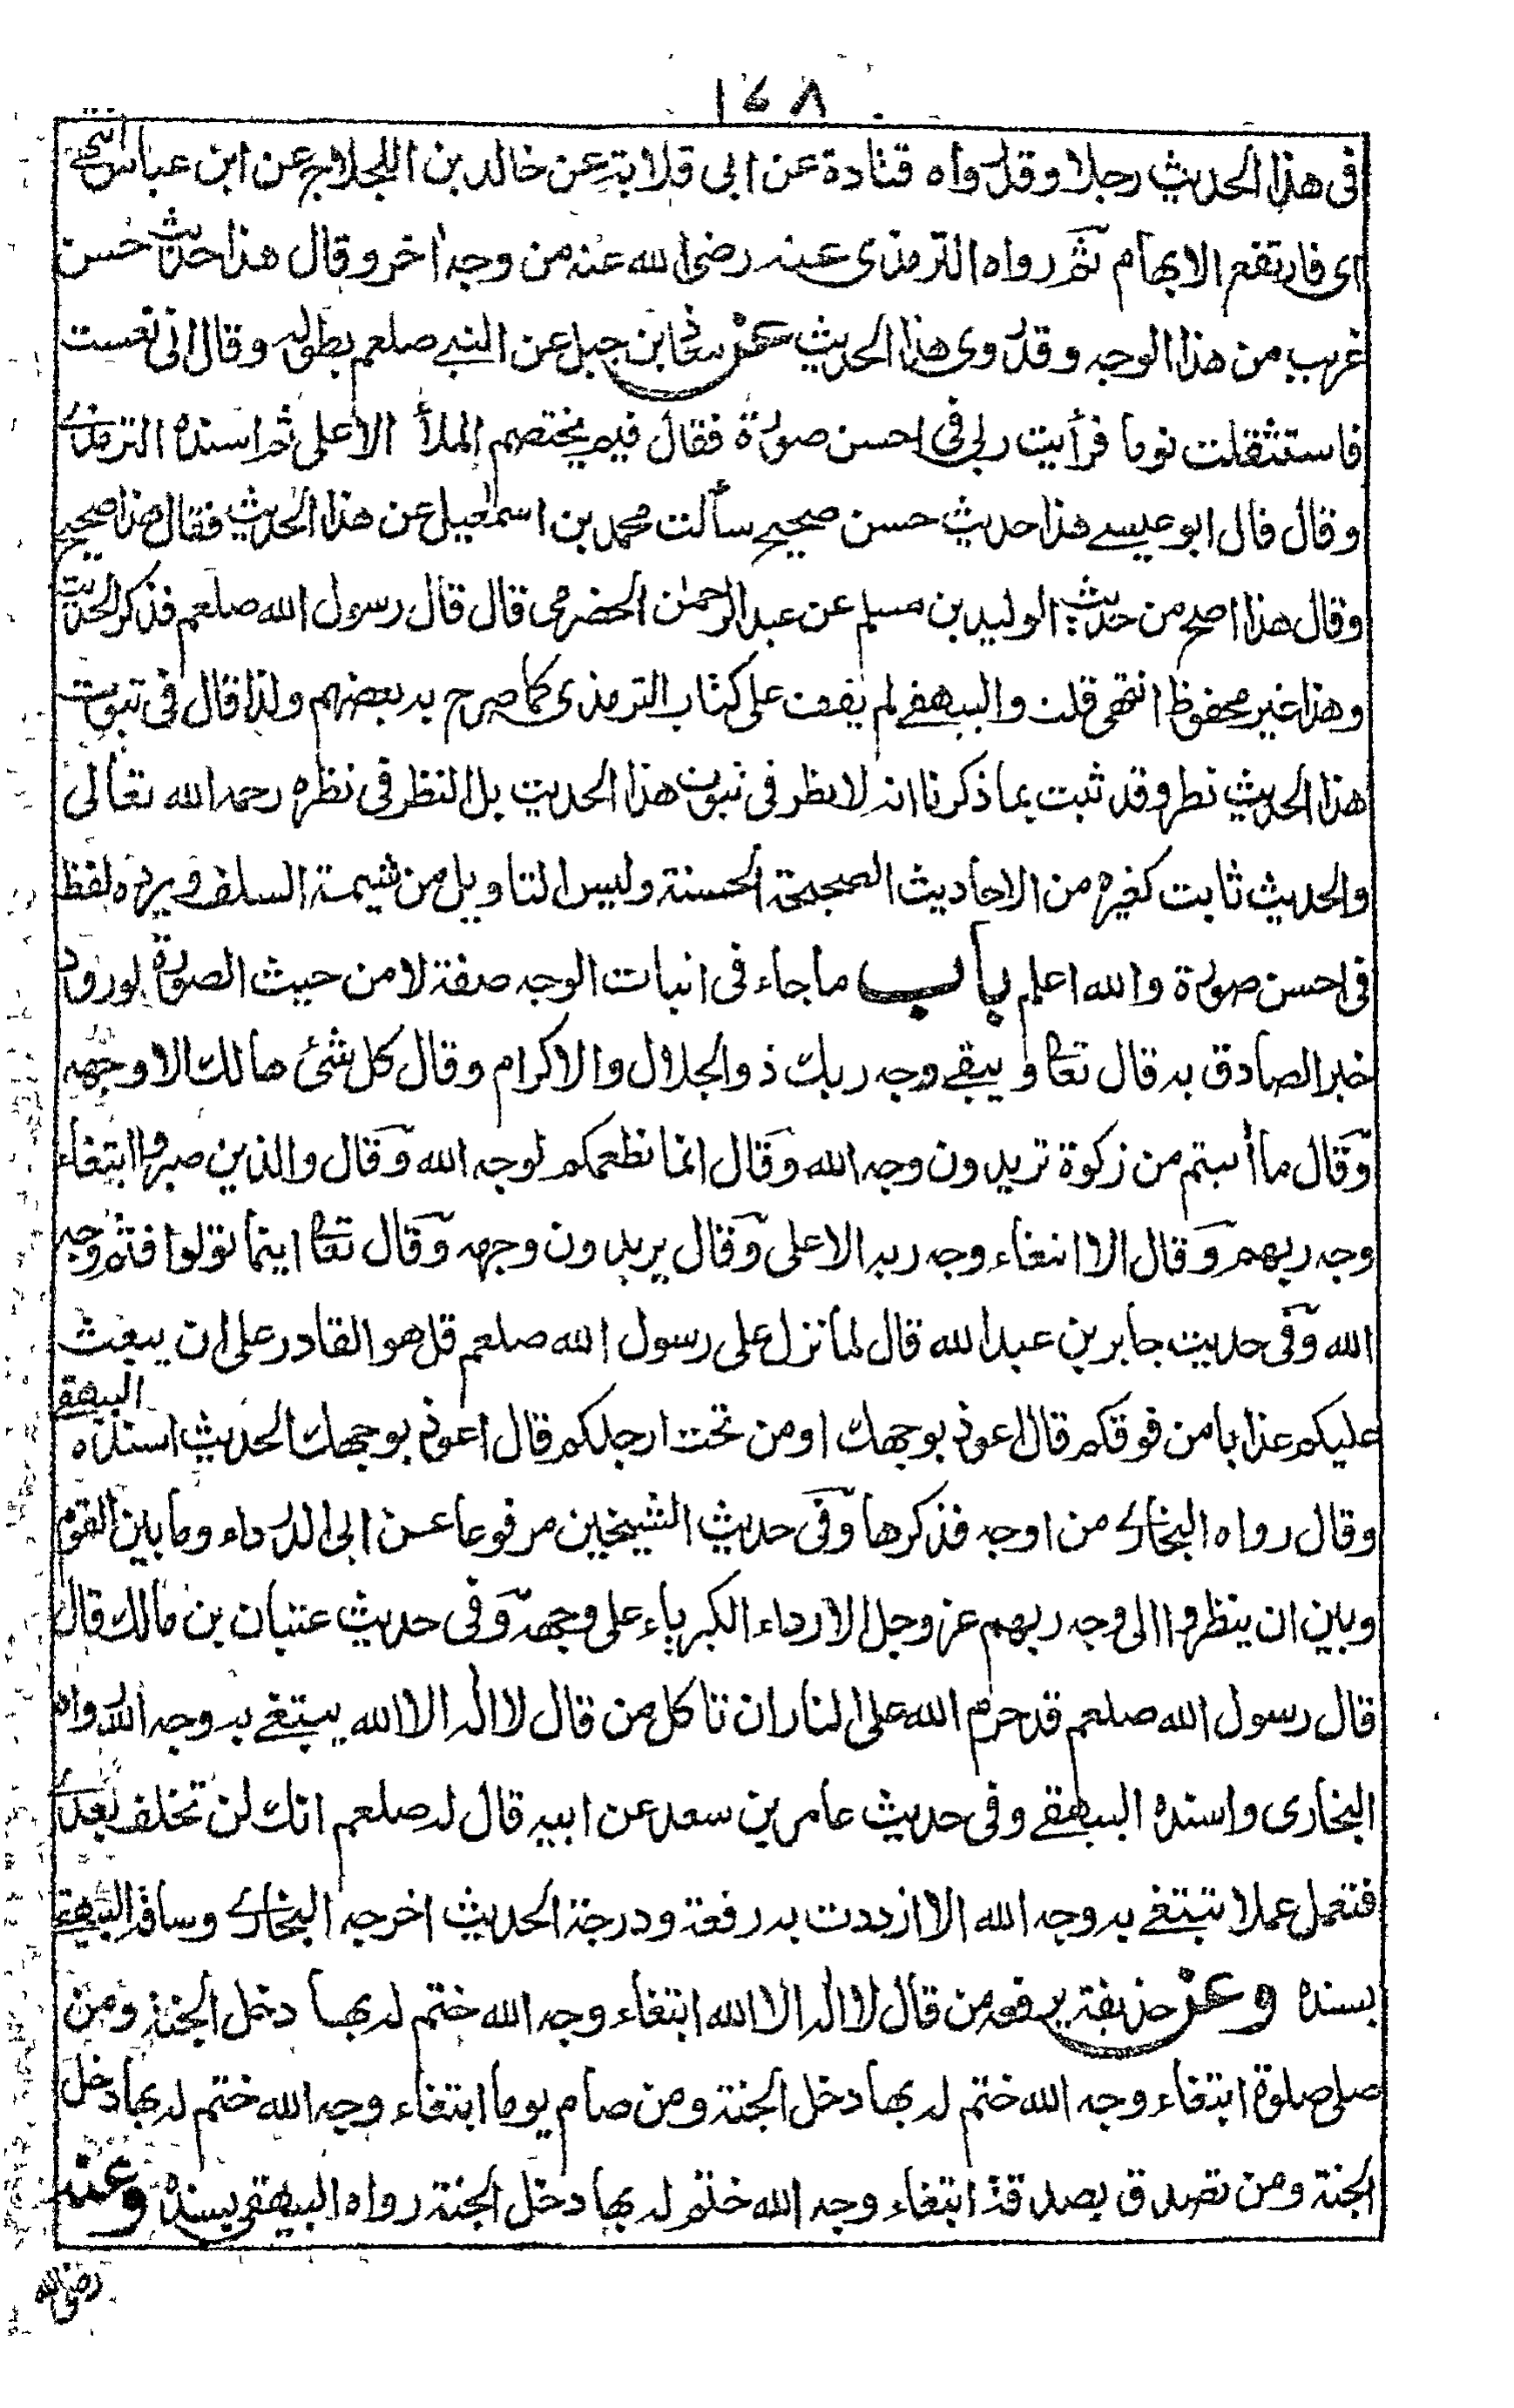 ١٤٨
فى هذا الحديث رجلا وقد رواه قتادة عن ابى قلابة عن خالد بن اللجلاج عن ابن عباس انتهى
اى فارتفع الابهام ثم رواه الترمذى عنه رضى الله عنه من وجه اخر وقال هذا حديث حسن
غريب من هذا الوجه وقد روى هذا الحديث عن معاذ بن جبل عن النبي صلعم بطوله وقال انى نعست
فاستثقلت نوما فرأيت ربى فى احسن صورة فقال فيم يختصم الملأ الاعلى ثم اسنده الترمذي
وقال قال ابو عيسے هذا حديث حسن صحيح سألت محمد بن اسمعيل عن هذا الحديث فقال هذا صحيح
وقال هذا اصح من حديث الوليد بن مسلم عن عبد الرحمن الحضرمى قال قال رسول الله صلعم فذكر الحديث
وهذا غير محفوظ انتهى قلت والبيهقے لم يقف على كتاب الترمذى كما صرح به بعضهم ولذا قال فى ثبوت
هذا الحديث نظر وقد ثبت بما ذكرنا انه لا نظر فى ثبوت هذا الحديث بل النظر فى نظره رحمه الله تعالى
والحديث ثابت كغيره من الاحاديث الصحيحة الحسنة وليس التاويل من شيمة السلف ويرده لفظ
فى احسن صورة والله اعلم باب ما جاء فى اثبات الوجه صفة لا من حيث الصورة لورود
خبر الصادق به قال تعا ويبقے وجه ربك ذو الجلال والاكرام وقال كل شئ هالك الا وجهه
وقال ما أتيتم من زكوة تريدون وجه الله وقال انما نطعمكم لوجه الله وقال والذين صبروا ابتغاء
وجه ربهم وقال الا ابتغاء وجه ربه الاعلى وقال يريدون وجهه وقال تعا اينما تولوا فثم وجه
الله وفى حديث جابر بن عبد الله قال لما نزل على رسول الله صلعم قل هو القادر على ان يبعث
عليكم عذابا من فوقكم قال اعوذ بوجهك او من تحت ارجلكم قال اعوذ بوجهك الحديث اسنده البيهقے
وقال رواه البخارى من اوجه فذكرها وفى حديث الشيخين مرفوعا عن ابى الدرداء وما بين القوم
وبين ان ينظروا الى وجه ربهم عز وجل الا رداء الكبرياء على وجهه وفى حديث عتبان بن مالك قال
قال رسول الله صلعم قد حرم الله على النار ان تاكل من قال لا اله الا الله يبتغے به وجه الله رواه
البخارى واسنده البيهقے وفى حديث عامر بن سعد عن ابيه قال له صلعم انك لن تخلف بعدى
فتعمل عملا تبتغے به وجه الله الا ازددت به رفعة ودرجة الحديث اخرجه البخارى وساقه البيهقے
بسنده وعن حذيفة يرفعه من قال لا اله الا الله ابتغاء وجه الله ختم له بها دخل الجنة ومن
صلى صلوة ابتغاء وجه الله ختم له بها دخل الجنة ومن صام يوما ابتغاء وجه الله ختم له بها دخل
الجنة ومن تصدق بصدقة ابتغاء وجه الله ختم له بها دخل الجنة رواه البيهقى بسنده وعنه
رضى الله